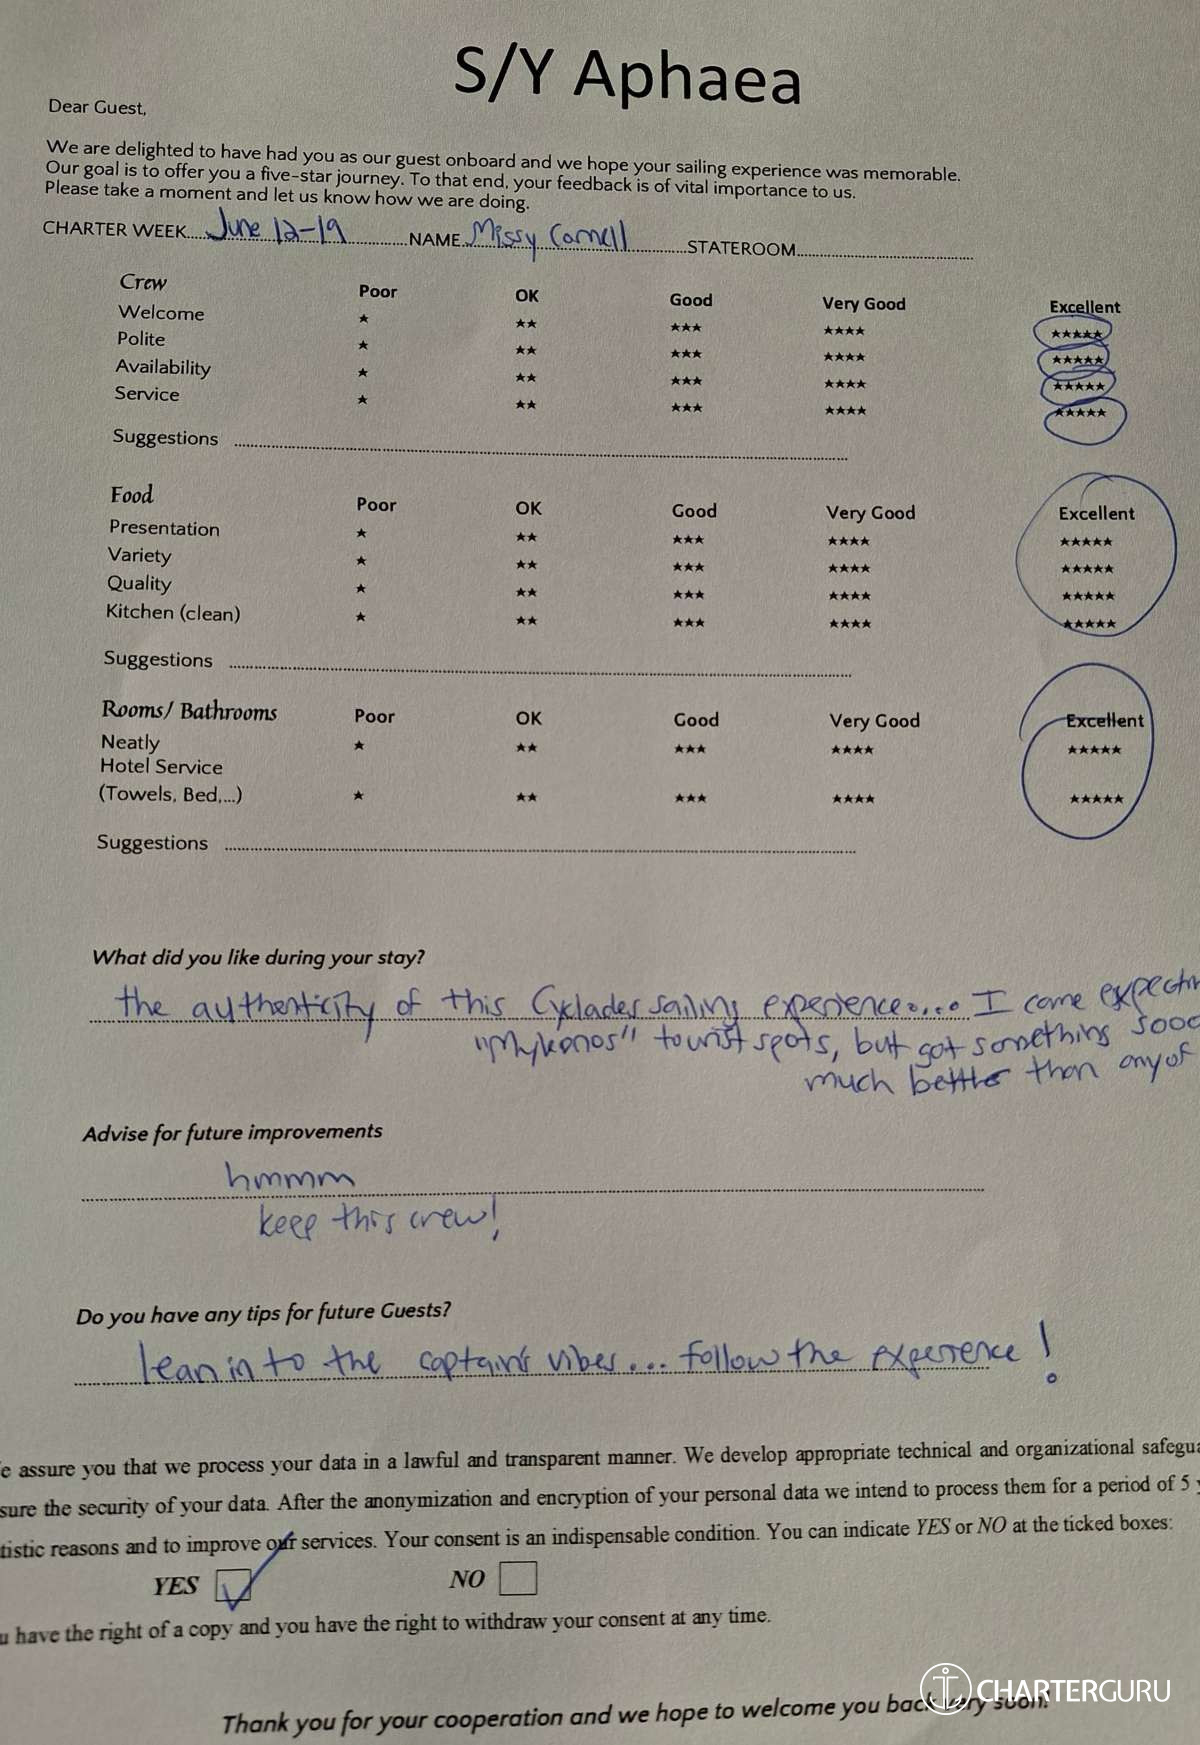 S/Y Aphaea
Dear Guest,
We are delighted to have had you as our guest onboard and we hope your sailing experience was memorable.
Our goal is to offer you a five-star journey. To that end, your feedback is of vital importance to us.
Please take a moment and let us know how we are doing.
CHARTER WEEK.....June 12-19..............NAME.Missy Cornell..............STATEROOM..............................
Crew Poor OK Good Very Good Excellent
Welcome ★ ★★ ★★★ ★★★★ ★★★★★
Polite ★ ★★ ★★★ ★★★★ ★★★★★
Availability ★ ★★ ★★★ ★★★★ ★★★★★
Service ★ ★★ ★★★ ★★★★ ★★★★★
Suggestions
Food Poor OK Good Very Good Excellent
Presentation ★ ★★ ★★★ ★★★★ ★★★★★
Variety ★ ★★ ★★★ ★★★★ ★★★★★
Quality ★ ★★ ★★★ ★★★★ ★★★★★
Kitchen (clean) ★ ★★ ★★★ ★★★★ ★★★★★
Suggestions
Rooms/ Bathrooms Poor OK Good Very Good Excellent
Neatly ★ ★★ ★★★ ★★★★ ★★★★★
Hotel Service
(Towels, Bed,...) ★ ★★ ★★★ ★★★★ ★★★★★
Suggestions
What did you like during your stay?
the authenticity of this Cyclades sailing experience.... I came expectin
"Mykonos" tourist spots, but got something sooo
much better than any of
Advise for future improvements
hmmmm
keep this crew!
Do you have any tips for future Guests?
lean in to the captain's vibes... follow the experience!
e assure you that we process your data in a lawful and transparent manner. We develop appropriate technical and organizational safegua
sure the security of your data. After the anonymization and encryption of your personal data we intend to process them for a period of 5 y
tistic reasons and to improve our services. Your consent is an indispensable condition. You can indicate YES or NO at the ticked boxes:
YES NO
u have the right of a copy and you have the right to withdraw your consent at any time.
Thank you for your cooperation and we hope to welcome you back very soon!
CHARTERGURU